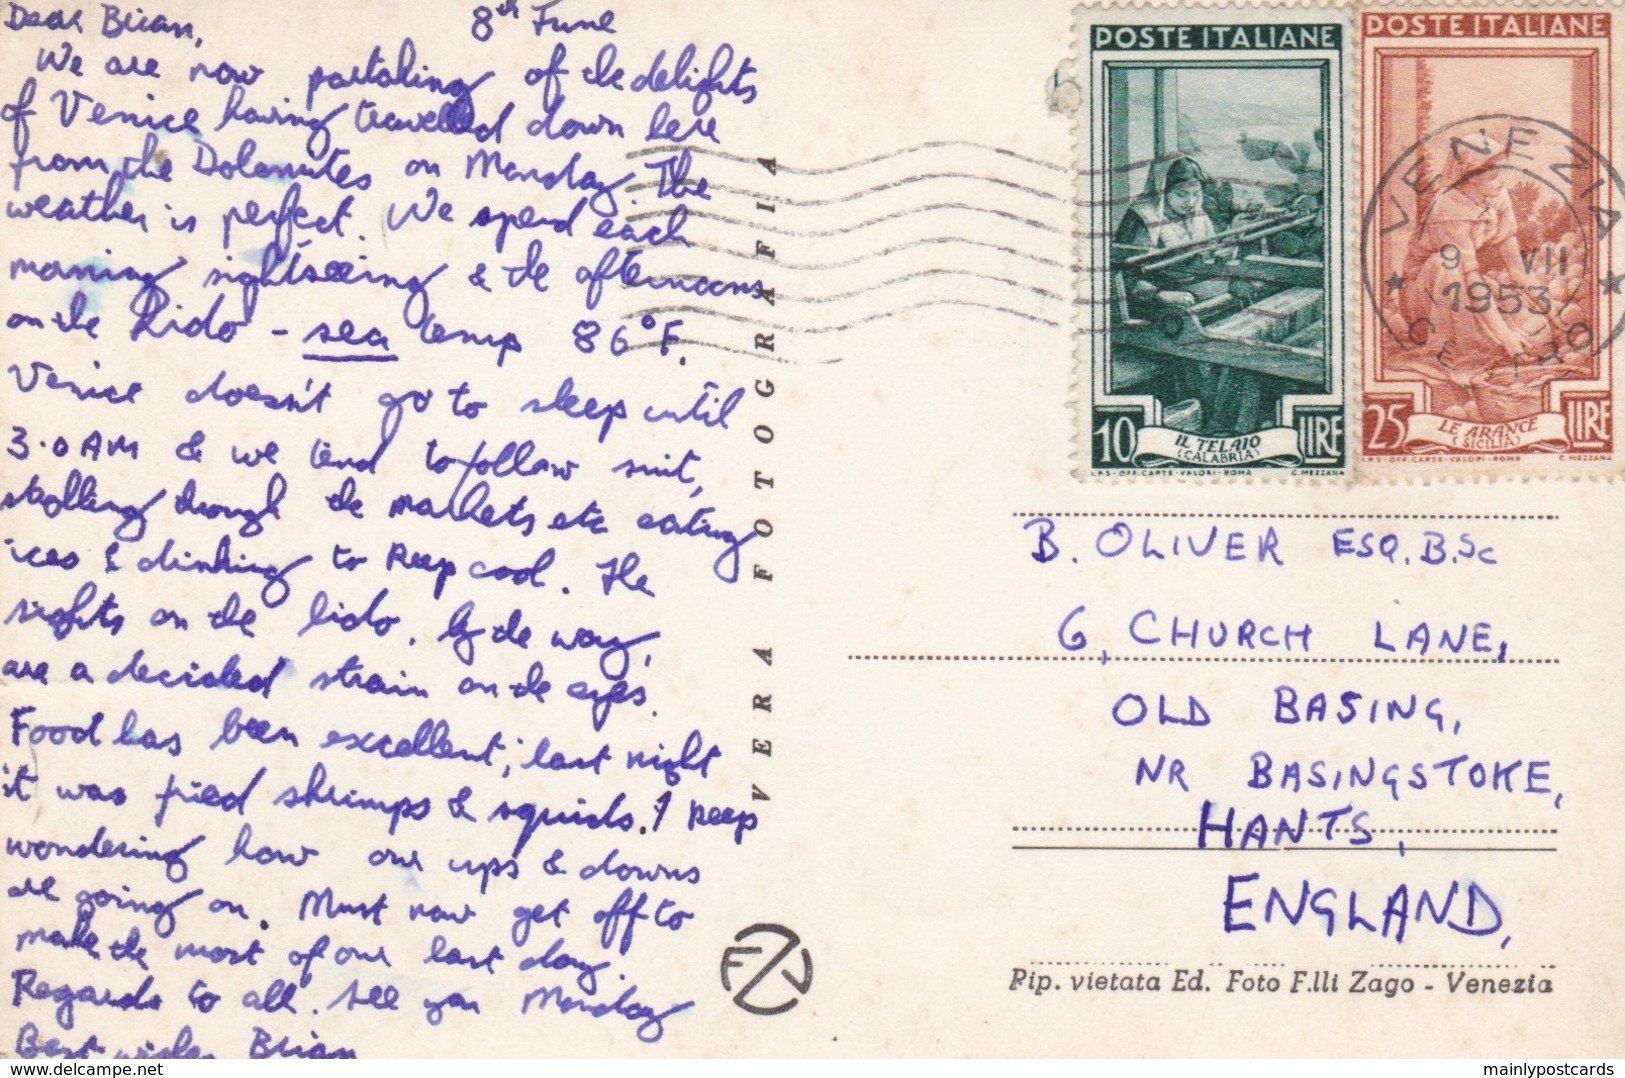 Dear Brian,
8th June
We are now partaking of the delights
of Venice having travelled down here
from the Dolomites on Monday. The
weather is perfect. We spend each
morning sightseeing & the afternoons
on the Lido - sea temp 86°F.
Venice doesn't go to sleep until
3.0 AM & we tend to follow suit,
strolling through the markets etc eating
ices & drinking to keep cool. The
sights on the lido, by the way,
are a decided strain on the eyes.
Food has been excellent; last night
it was fried shrimps & squids. I keep
wondering how our ups & downs
are going on. Must now get off to
make the most of our last day.
Regards to all. See you Monday
Best wishes Brian
VERA FOTOGRAFIA
POSTE ITALIANE
10 LIRE
IL TELAIO
(CALABRIA)
I.P.S-OFF.CARTE-VALORI-ROMA C. MEZZANA
POSTE ITALIANE
25 LIRE
LE ARANCE
(SICILIA)
I.P.S-OFF.CARTE-VALORI-ROMA C. MEZZANA
VENEZIA
9 VII
1953
CENTRO
B. OLIVER ESQ. B.Sc
6, CHURCH LANE,
OLD BASING,
NR BASINGSTOKE,
HANTS,
ENGLAND,
Rip. vietata Ed. Foto F.lli Zago - Venezia
mainlypostcards